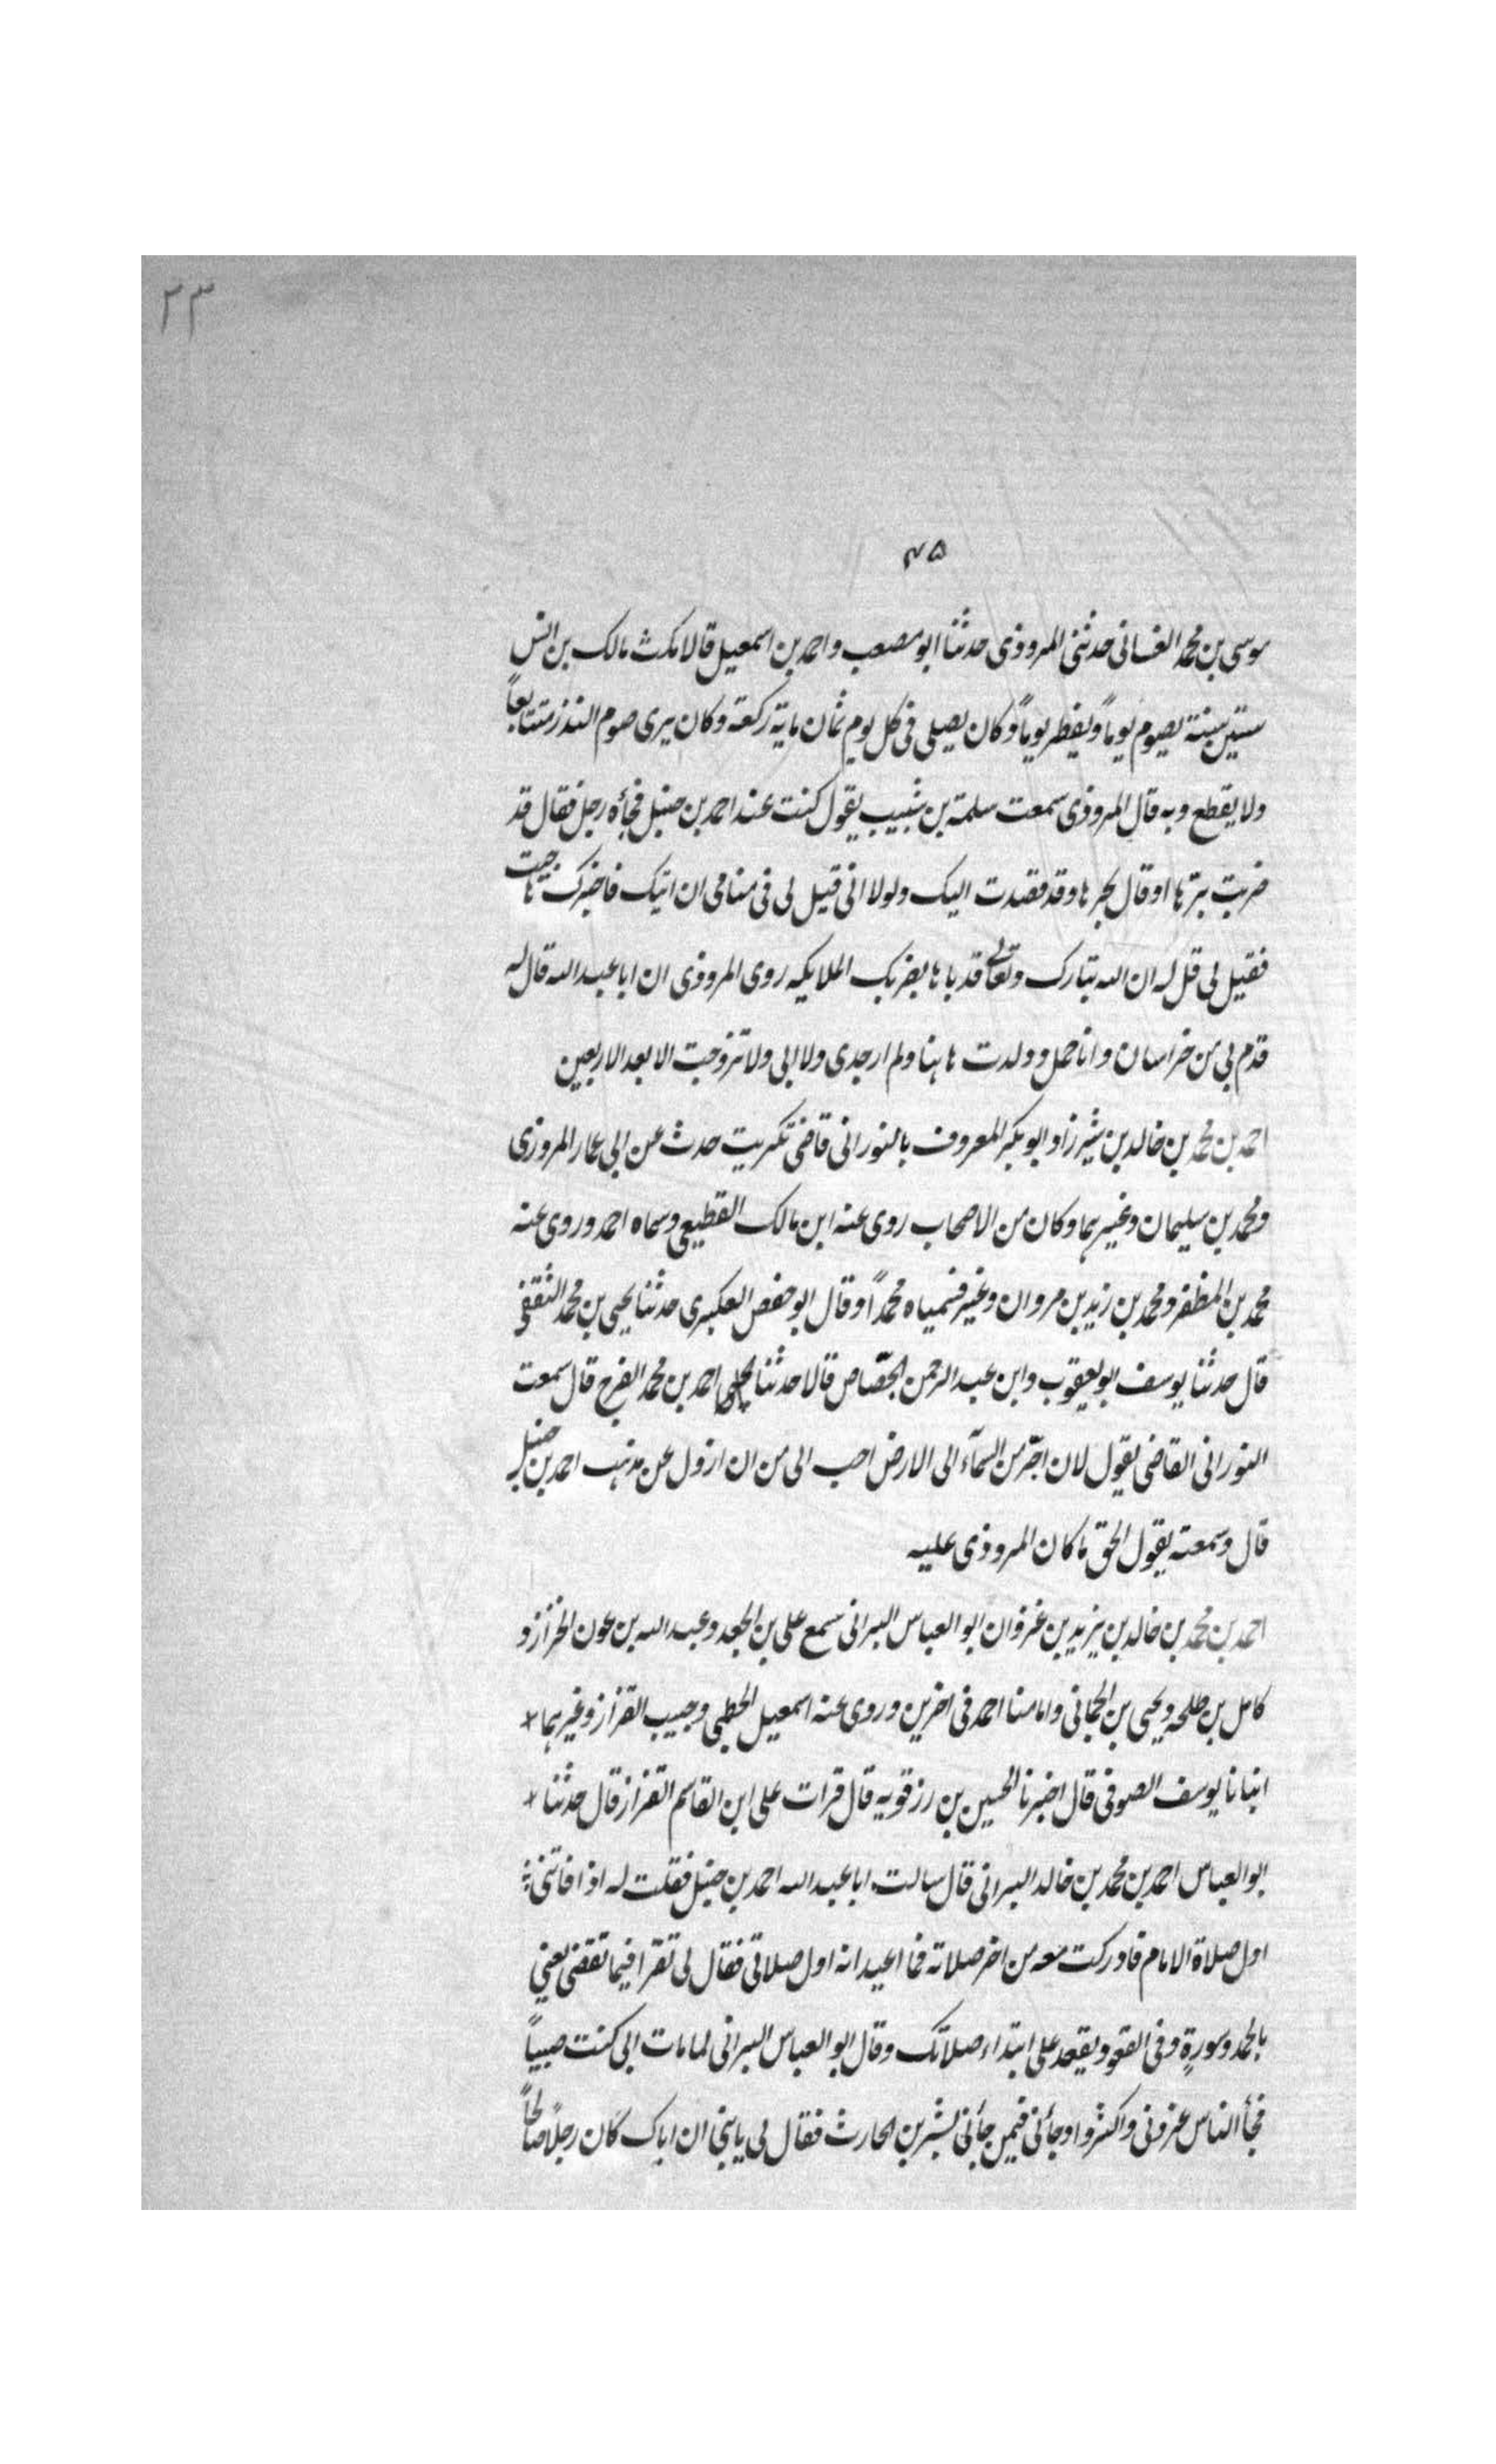 ٣٣
٤٥
موسى بن محمد الغسانى حدثنى المروذى حدثنا ابو مصعب واحمد بن اسمعيل قالا مكث مالك بن انس
ستين سنة يصوم يوماً ويفطر يوماً وكان يصلى فى كل يوم ثمان ماية ركعة وكان يرى صوم النذر متتابعاً
ولا يقطع وبه قال المروذى سمعت سلمة بن شبيب يقول كنت عند احمد بن حنبل فجأه رجل فقال قد
ضربت برها او قال بحرها وقد قصدت اليك ولولا انى قيل لى فى منامى ان اتيك فاخبرك ما جيت
فقيل لى قل له ان الله تبارك وتعالى قد باها بضربك الملايكه روى المروذى ان ابا عبد الله قال له
قدم بى من خراسان وانا حمل وولدت هاهنا ولم ار جدى ولا ابى ولا تزوجت الا بعد الاربعين
احمد بن محمد بن خالد بن شيرزاد ابو بكر المعروف بالنورانى قاضى تكريت حدث عن ابى عمار المروزى
ومحمد بن سليمان وغيرهما وكان من الاصحاب روى عنه ابن مالك القطيعى وسماه احمد وروى عنه
محمد بن المظفر ومحمد بن زيد بن مروان وغير فسمياه محمداً وقال ابو حفص العكبرى حدثنا يحيى بن محمد الثقفى
قال حدثنا يوسف ابو يعقوب وابن عبد الرحمن الجصّاص قالا حدثنا احمد بن محمد الفرح قال سمعت
النورانى القاضى يقول لان اخّر من السمآء الى الارض احب الى من ان ازول عن مذهب احمد بن حنبل
قال وسمعته يقول الحق ما كان المروذى عليه
احمد بن محمد بن خالد بن يزيد بن غزوان ابو العباس البرانى سمع على بن الجعد وعبد الله بن عون الخراز و
كامل بن طلحه ويحيى بن الحمانى وامامنا احمد فى اخرين وروى عنه اسمعيل الخطبى وحبيب القزاز وغيرهما
انبانا يوسف الصوفى قال اخبرنا الحسين بن رزقويه قال قرات على ابن القاسم القزاز قال حدثنا
ابو العباس احمد بن محمد بن خالد البرانى قال سالت ابا عبد الله احمد بن حنبل فقلت له اذا فاتنى
اول صلاة الامام فادركت معه من اخر صلاته فما اعيد انه اول صلاتى فقال لى تقرا فيما تقضى يعنى
بالحمد وسورةٍ وفى القعود يقعد على ابتداء صلاتك وقال ابو العباس البرانى لما مات ابى كنت صبياً
فجأ الناس عزونى واكثروا وجأنى فيمن جأنى بشر بن الحارث فقال لى يا بنى ان اباك كان رجلاً صالحاً